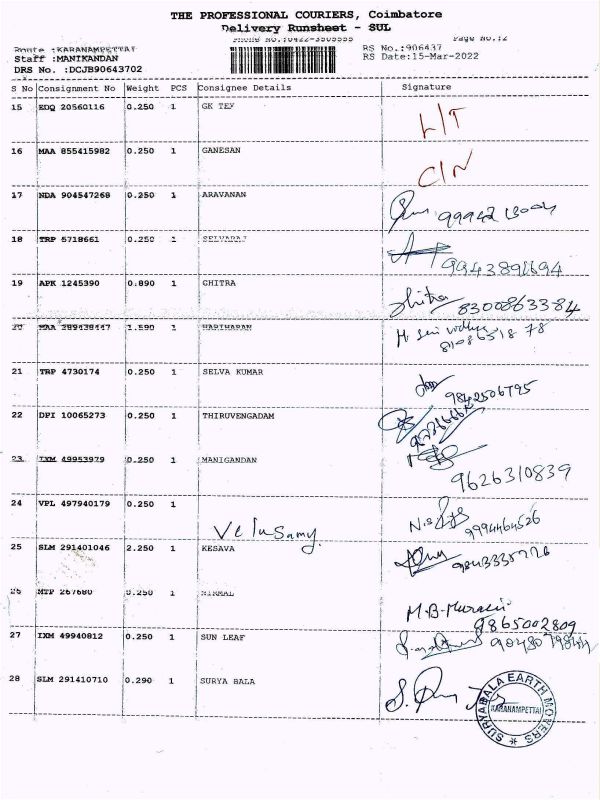 THE PROFESSIONAL COURIERS, Coimbatore
Delivery Runsheet - SUL
Page No.:2
Route :KARANAMPETTAI
RS No.:906437
Staff :MANIKANDAN
RS Date:15-Mar-2022
DRS No. :DCJB90643702
S No Consignment No Weight PCS Consignee Details Signature
15 EDQ 20560116 0.250 1 GK TEX
L/T
16 MAA 855415982 0.250 1 GANESAN
C/N
17 NDA 904547268 0.250 1 ARAVANAN
18 TRP 5718661 0.250 1 SELVARAJ
9943891694
19 APK 1245390 0.890 1 CHITRA
Chitra 8300863384
20 MAA 289438447 1.590 1 HARIHARAN
21 TRP 4730174 0.250 1 SELVA KUMAR
9842506795
22 DPI 10065273 0.250 1 THIRUVENGADAM
23 IXM 49953979 0.250 1 MANIGANDAN
9626310839
24 VPL 497940179 0.250 1
Velusamy
9994464526
25 SLM 291401046 2.250 1 KESAVA
26 MTP 267680 0.250 1 NIRMAL
9865002809
27 IXM 49940812 0.250 1 SUN LEAF
28 SLM 291410710 0.290 1 SURYA BALA
SURYABALA EARTH MOVERS
KARANAMPETTAI